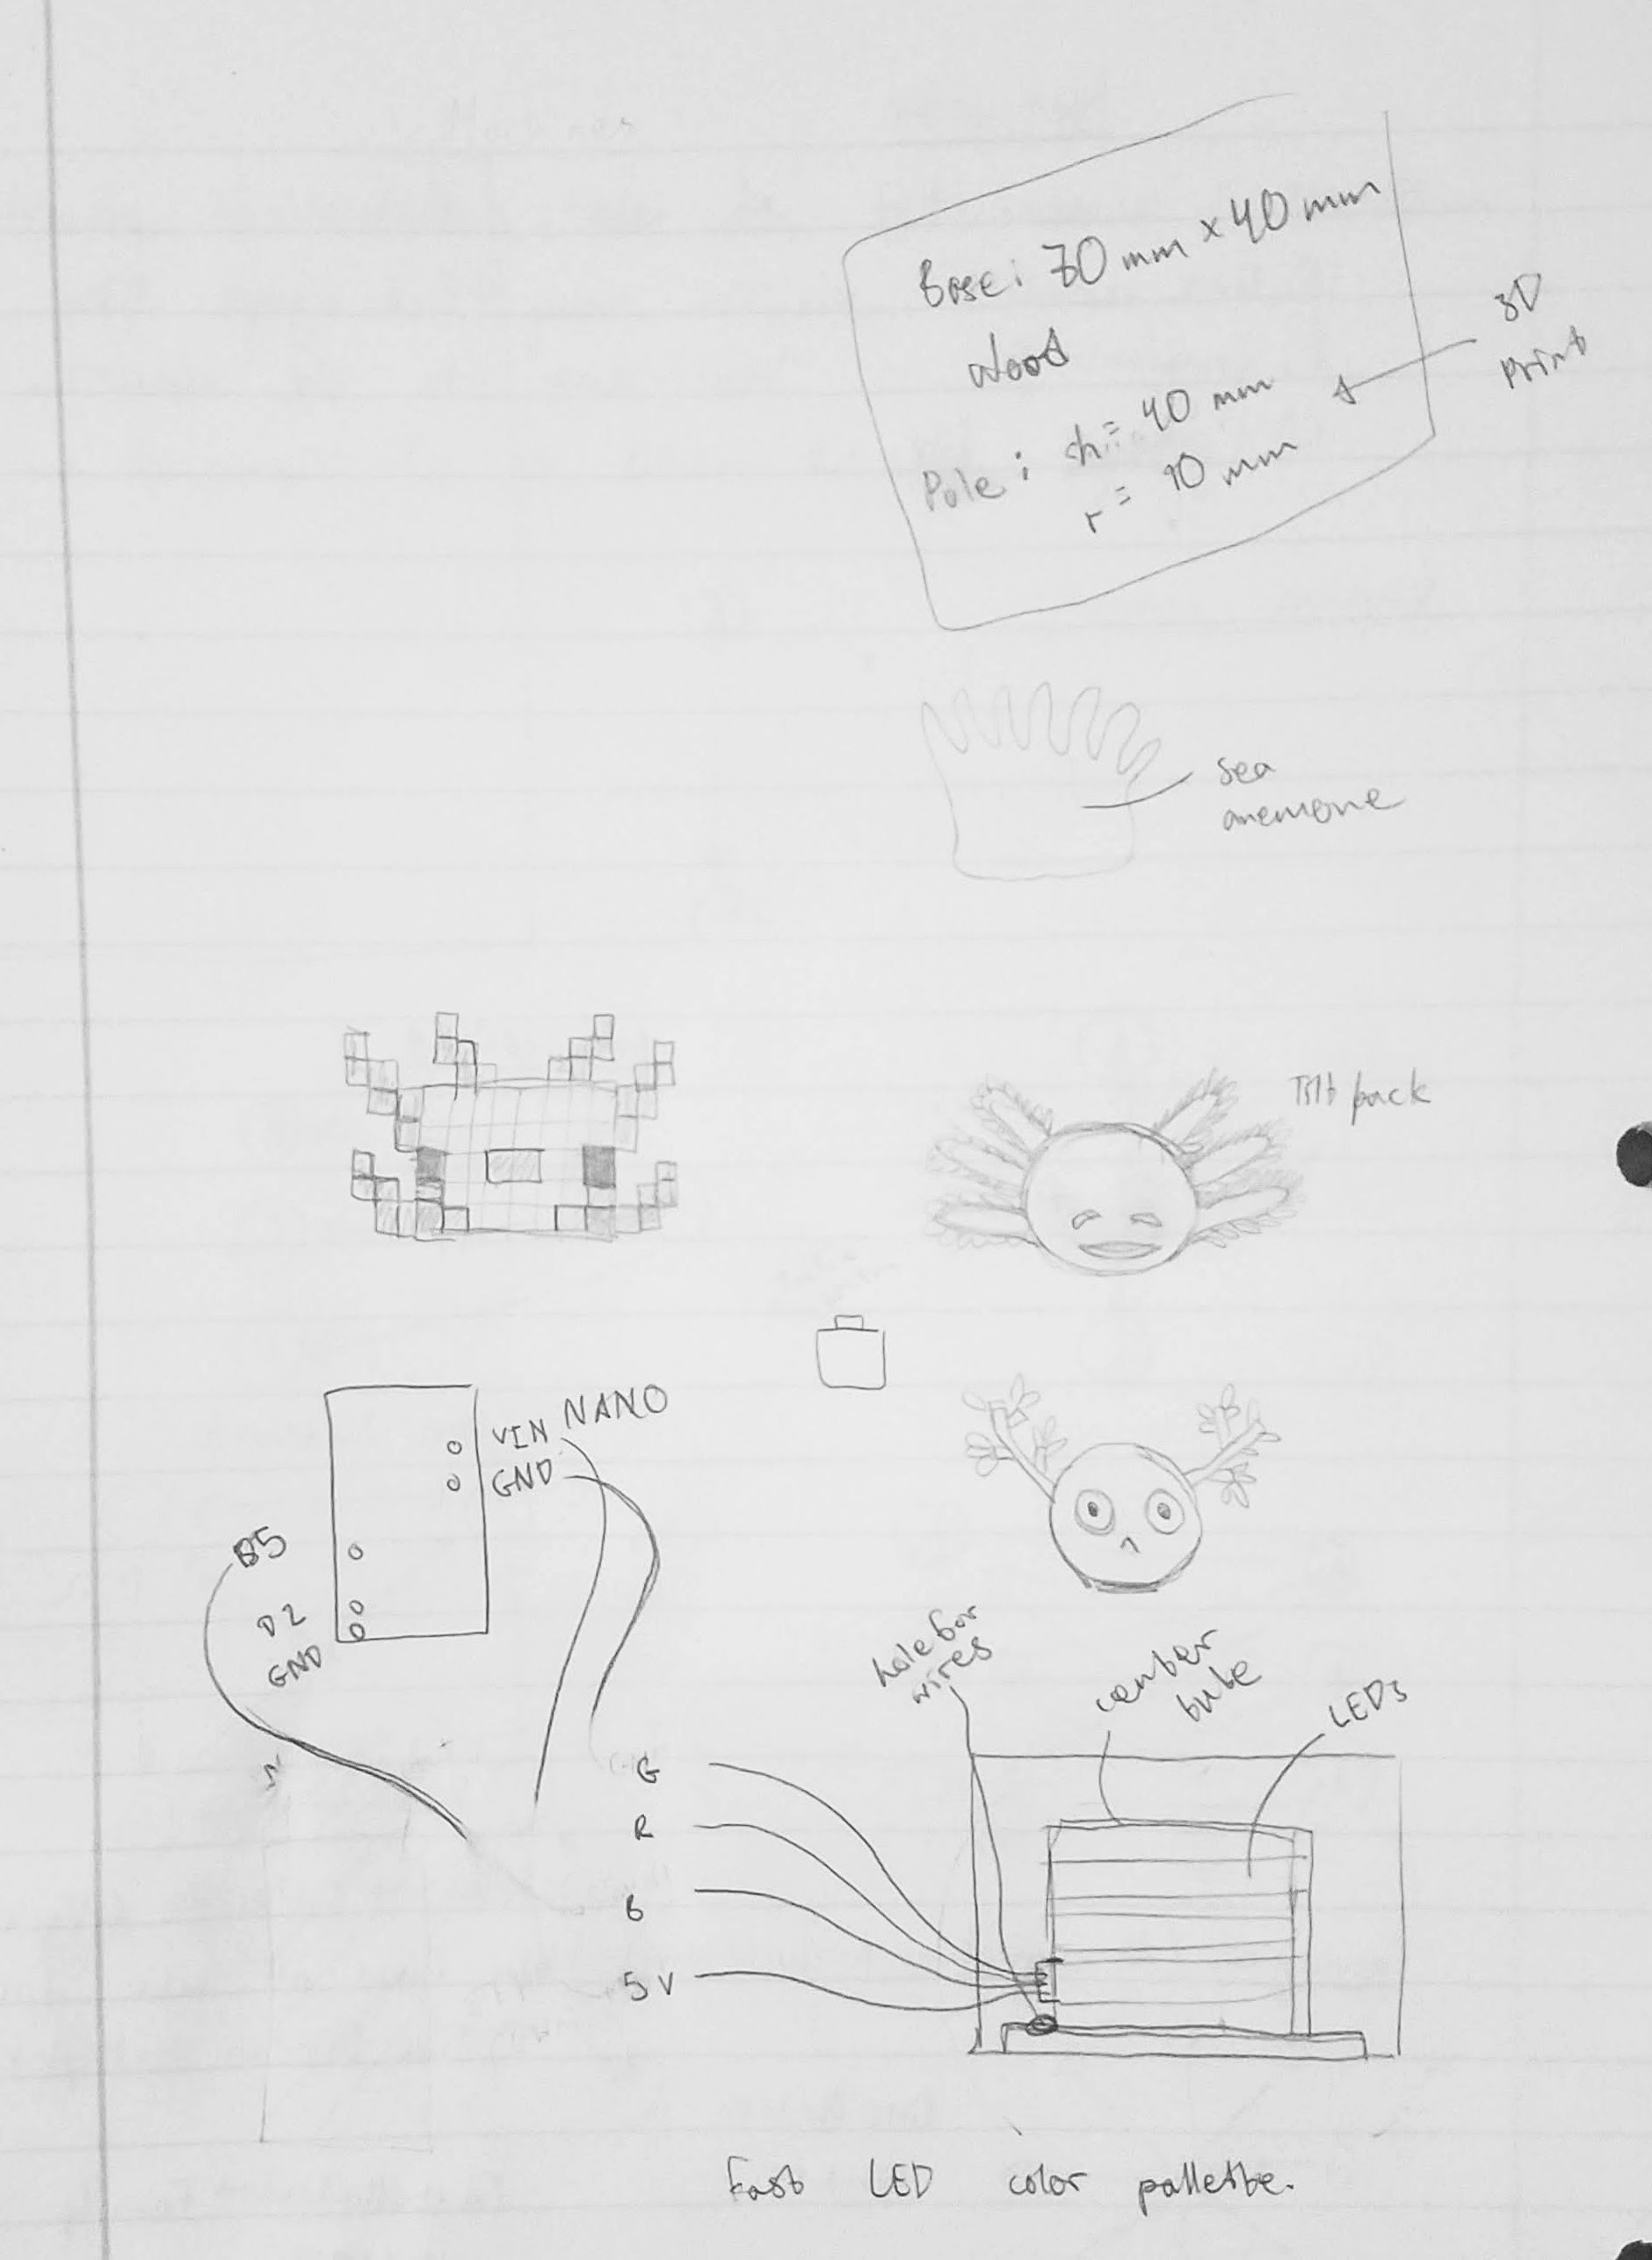 Base: 70 mm x 40 mm
Wood
Pole: h = 40 mm
r = 10 mm
3D
Print
sea
anemone
Tilt back
NANO
VIN
GND
D5
D2
GND
hole for
wires
center
tube
LEDs
G
R
B
5V
Fast LED color palletite.